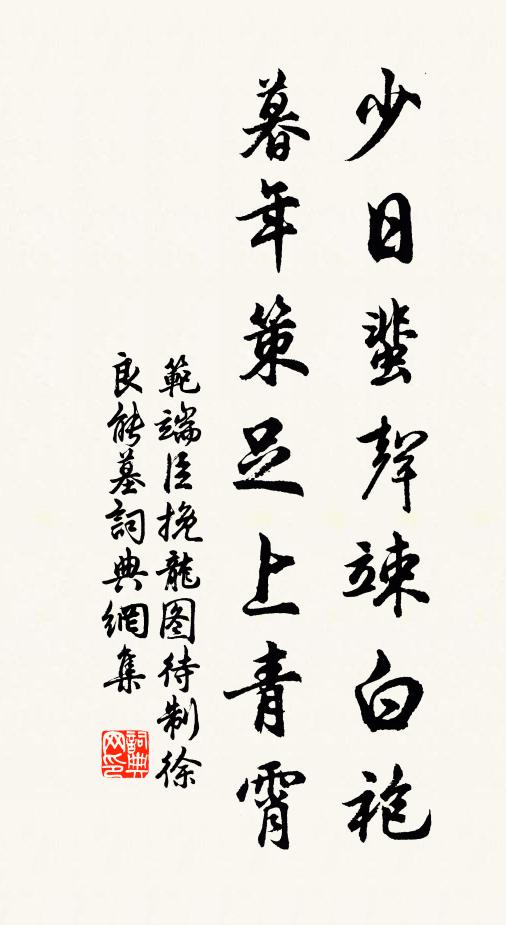 少日蜚聲竦白袍
暮年策足上青霄
範端臣挽龍图待制徐
良能墓詞典網集
詞典网印